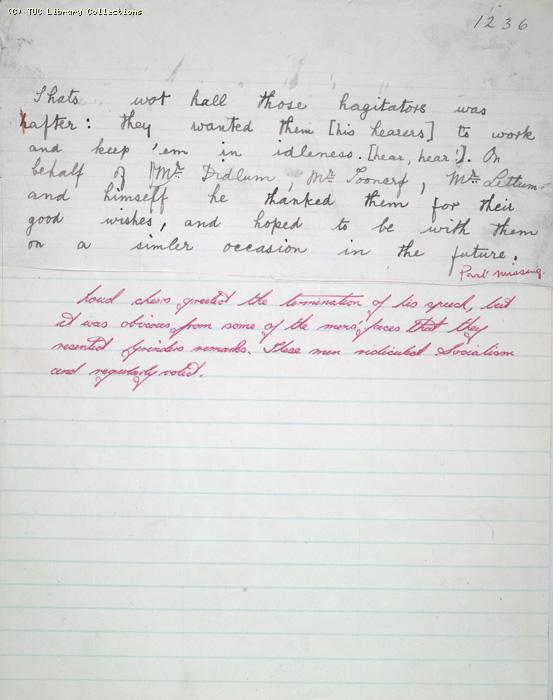 (C) TUC Library Collections
1236
Thats wot hall those hagitators was
hafter: they wanted them [his hearers] to work
and keep 'em in idleness. [hear, hear!]. On
behalf of Mr Didlum, Mr Toonarf, Mr Lettum
and himself he thanked them for their
good wishes, and hoped to be with them
on a simler occasion in the future.
Part missing.
Loud cheers greeted the termination of his speech, but
it was obvious from some of the mens' faces that they
resented Grinders remarks. These men ridiculed Socialism
and regularly voted.